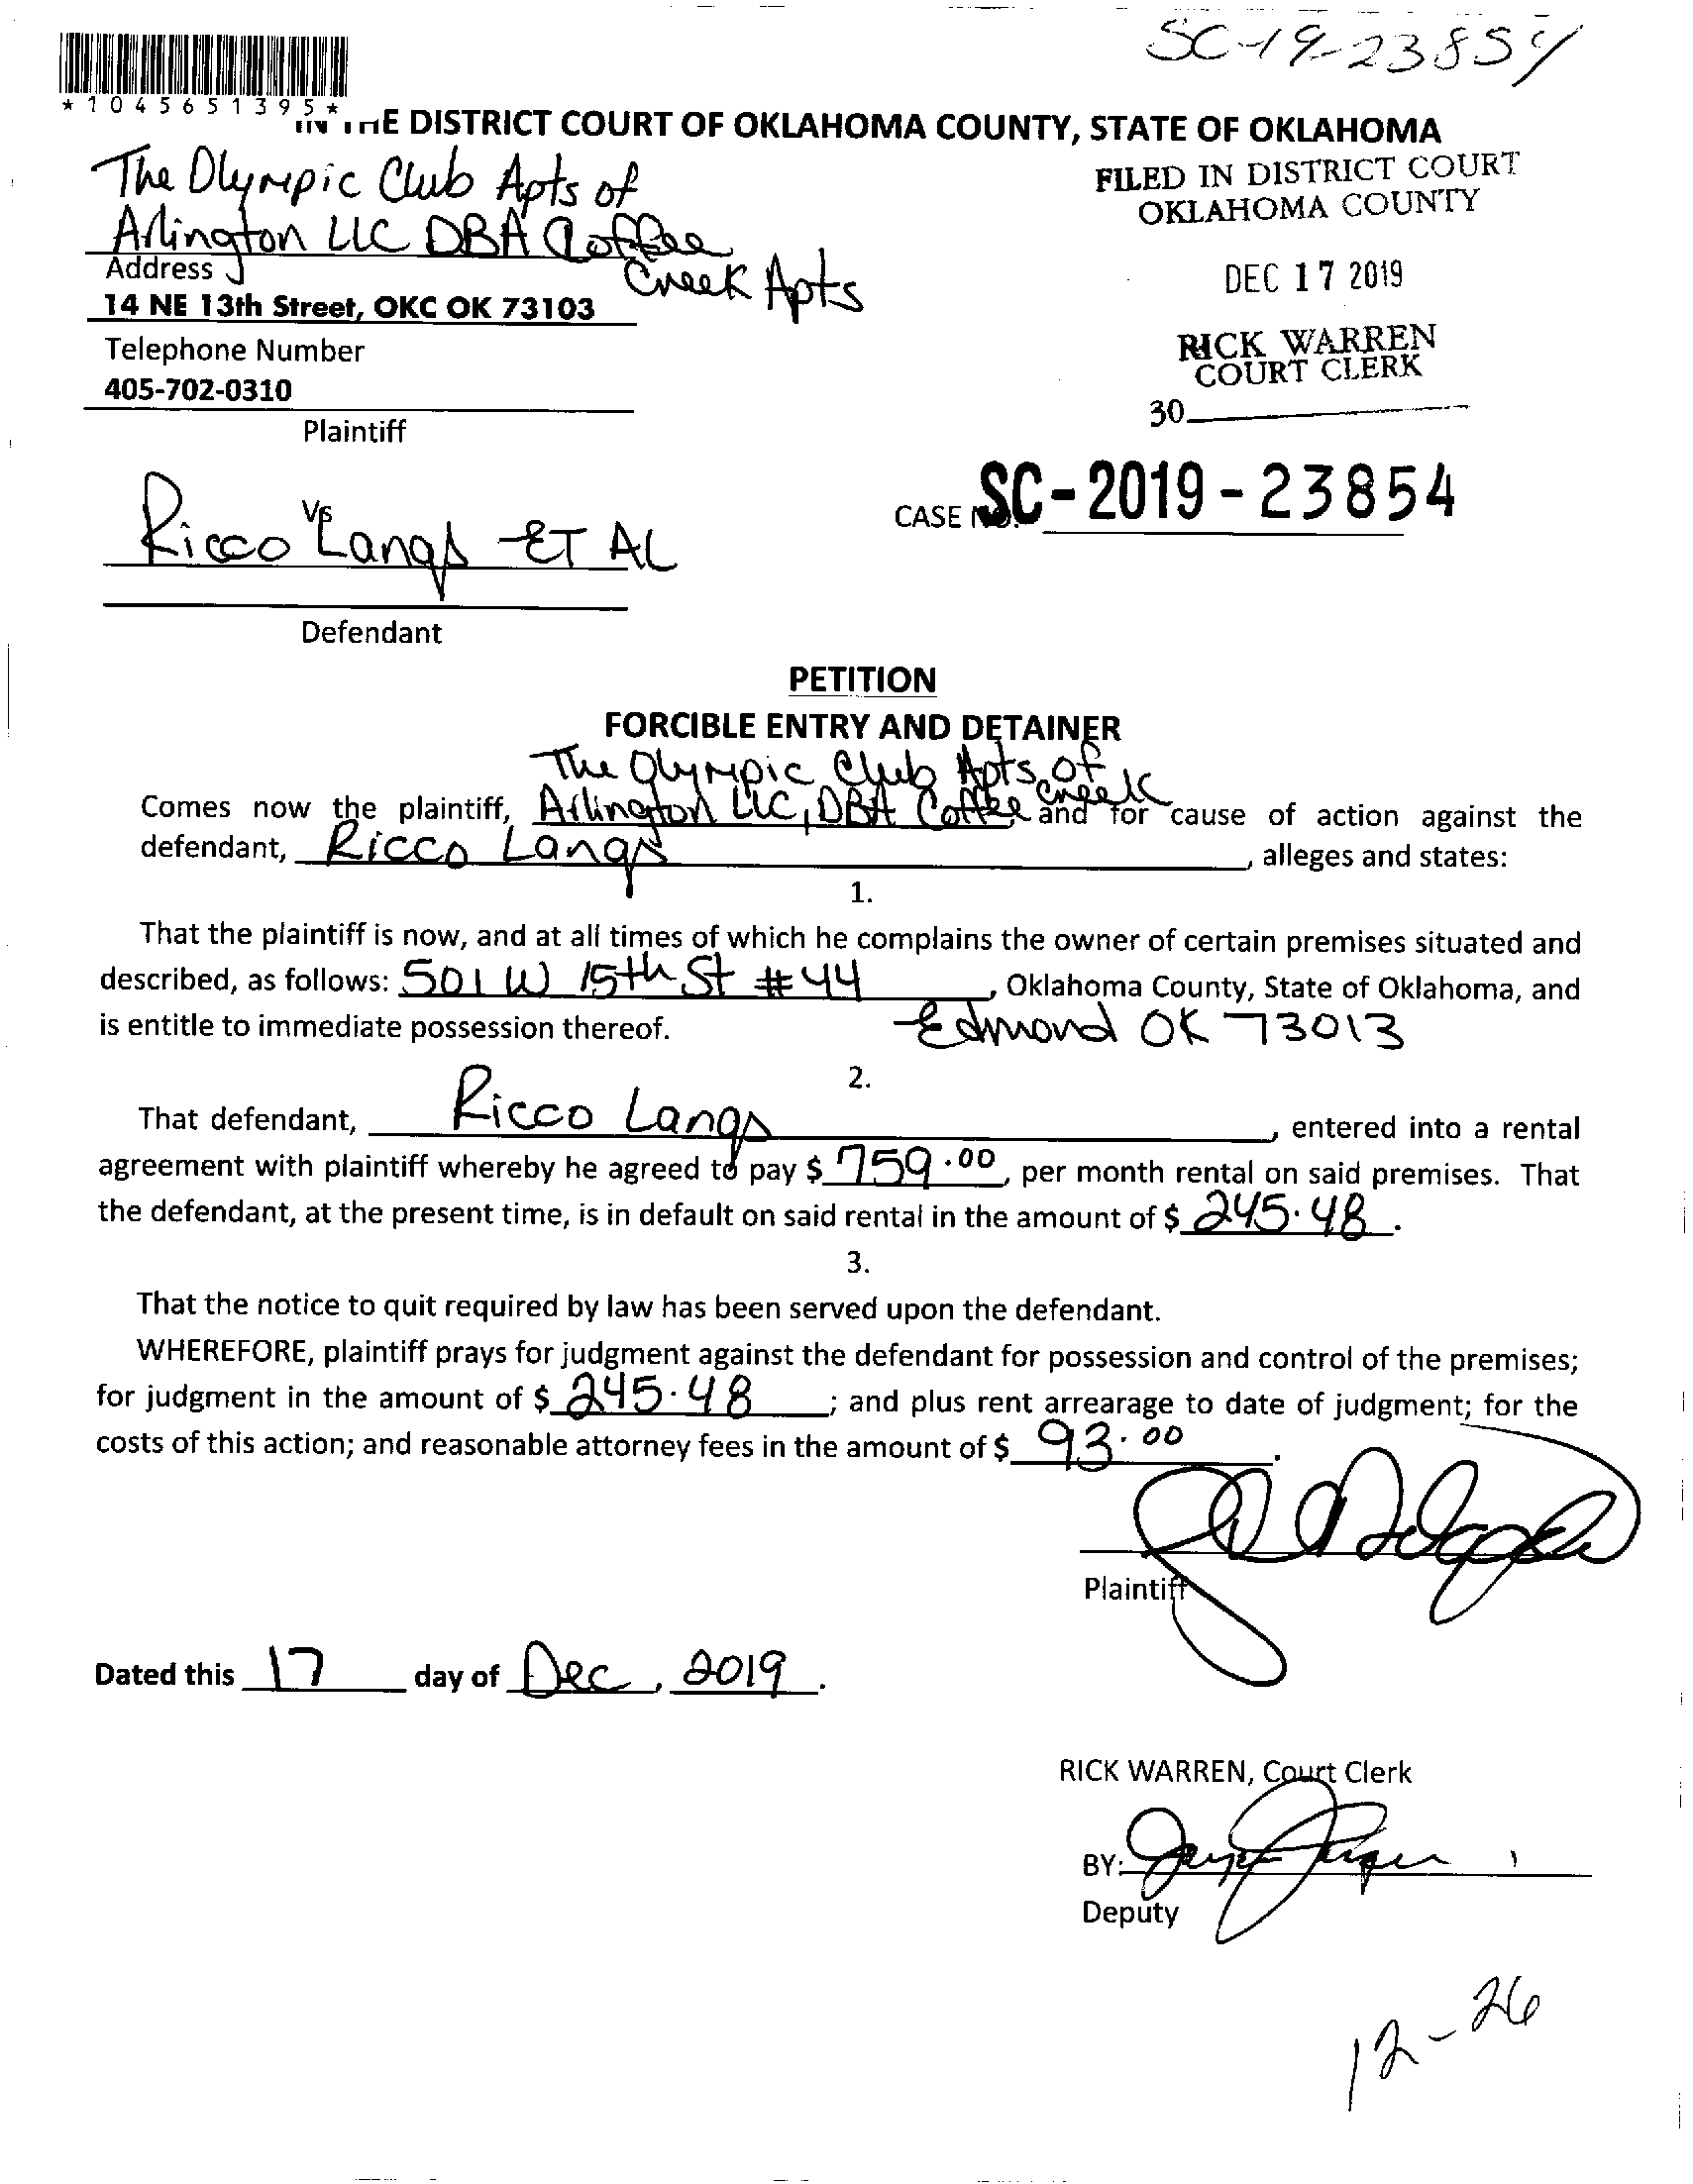 SC-19-23854
*1045651395*
IN THE DISTRICT COURT OF OKLAHOMA COUNTY, STATE OF OKLAHOMA
The Olympic Club Apts of
Arlington LLC DBA Coffee
Creek Apts
FILED IN DISTRICT COURT
OKLAHOMA COUNTY
Address
14 NE 13th Street, OKC OK 73103
DEC 17 2019
Telephone Number
405-702-0310
RICK WARREN
COURT CLERK
30
Plaintiff
Vs
Ricco Langs ET AL
CASE NO. SC-2019-23854
Defendant
PETITION
FORCIBLE ENTRY AND DETAINER
The Olympic Club Apts of
Comes now the plaintiff, Arlington LLC, DBA Coffee Creek and for cause of action against the
defendant, Ricco Langs, alleges and states:
1.
That the plaintiff is now, and at all times of which he complains the owner of certain premises situated and
described, as follows: 501 W 15th St #44, Oklahoma County, State of Oklahoma, and
is entitle to immediate possession thereof. Edmond OK 73013
2.
That defendant, Ricco Langs, entered into a rental
agreement with plaintiff whereby he agreed to pay $ 759.00, per month rental on said premises. That
the defendant, at the present time, is in default on said rental in the amount of $ 245.48.
3.
That the notice to quit required by law has been served upon the defendant.
WHEREFORE, plaintiff prays for judgment against the defendant for possession and control of the premises;
for judgment in the amount of $ 245.48; and plus rent arrearage to date of judgment; for the
costs of this action; and reasonable attorney fees in the amount of $ 93.00.
Plaintiff
Dated this 17 day of Dec, 2019.
RICK WARREN, Court Clerk
BY:
Deputy
12-26